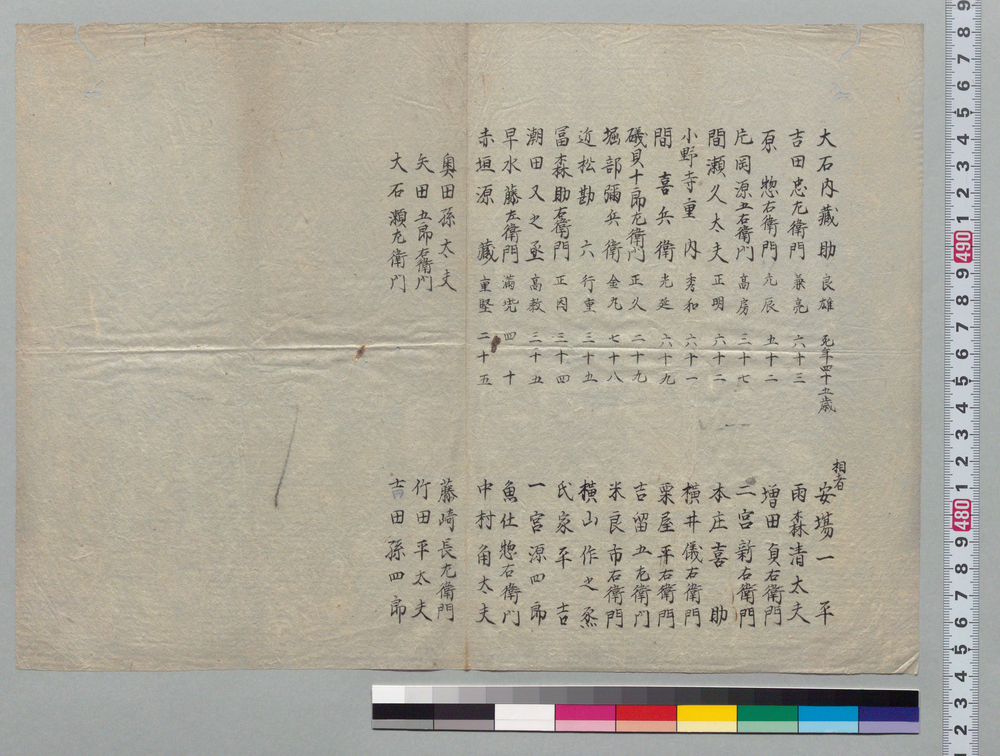 大石内蔵助 良雄 死年四十五歳
吉田忠左衛門 兼亮 六十三
原 惣右衛門 元辰 五十二
片岡源五右衛門 高房 三十七
間瀬久太夫 正明 六十二
小野寺重内 秀和 六十一
間 喜兵衛 光延 六十九
礒貝十郎左衛門 正久 二十九
堀部彌兵衛 金丸 七十八
近松勘六 行重 三十五
冨森助右衛門 正因 三十四
潮田又之丞 高教 三十五
早水藤左衛門 満尭 四十
赤垣源蔵 重堅 二十五
奥田孫太夫
矢田五郎右衛門
大石瀬左衛門
相者
安塲一平
雨森清太夫
増田貞右衛門
二宮新右衛門
本庄喜助
横井儀右衛門
栗屋平右衛門
吉留五左衛門
米良市右衛門
横山作之丞
氏家平吉
一宮源四郎
魚住惣右衛門
中村角太夫
藤崎長左衛門
竹田平太夫
吉田孫四郎